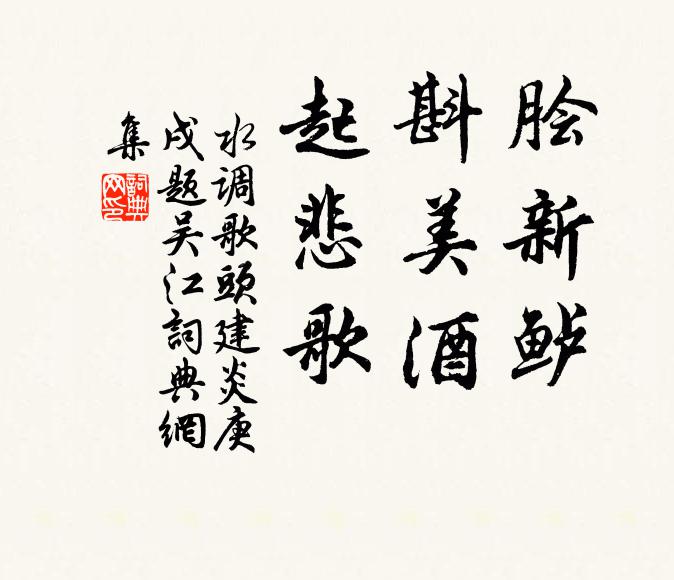 脍新鲈
斟美酒
起悲歌
水调歌頭建炎庚
戌题吴江詞典網
集
詞典
网印